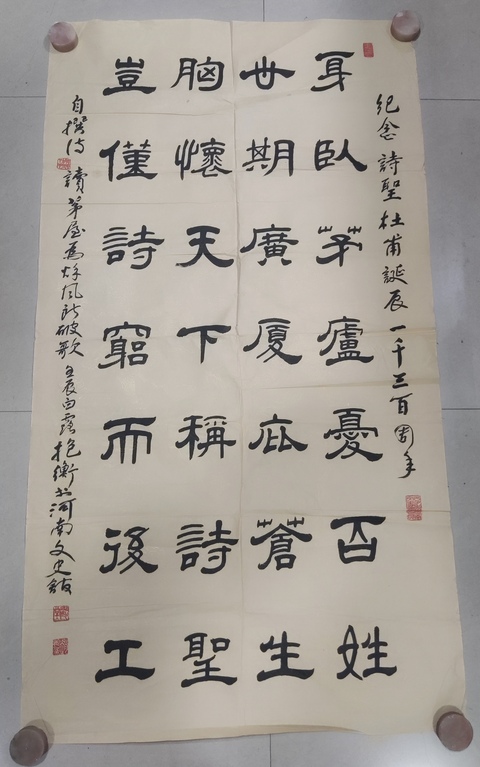 紀念詩聖杜甫誕辰一千三百周年
身臥茅廬憂百姓
世期廣厦庇蒼生
胸懷天下稱詩聖
豈僅詩窮而後工
自撰詩讀茅屋為秋風所破歌壬辰白露抱衡書河南文史館